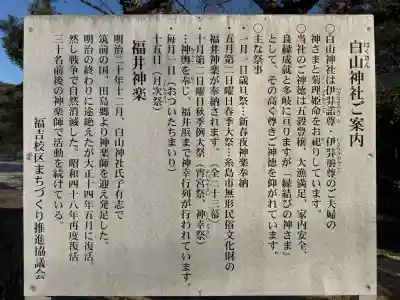 白山神社ご案内
はくさん
〇白山神社は伊弉諾尊、伊弉冊尊のご夫婦の
神さまと菊理姫命をお祀りしています。
〇当社のご神徳は五穀豊穣、大漁満足、家内安全、
良縁成就と多岐に亘りますが「縁結びの神さま」
として、その高く尊きご神徳を仰がれています。
〇主な祭事
一月一日歳旦祭…新春夜神楽奉納
五月第二日曜日春季大祭…糸島市無形民俗文化財の
福井神楽が奉納されます。（全二十三幕）
十月第二日曜日秋季例大祭（宵宮祭、神幸祭）
…神輿を奉じ、福井浜まで神幸行列が行われています。
毎月一日（おついたちまいり）
十五日（月次祭）
福井神楽
明治二十年十二月、白山神社氏子有志で
筑前の国、田島郷より神楽師を迎え発足した。
明治の終わりに途絶えたが大正十四年五月に復活。
然し戦争で自然消滅した。昭和四十八年再度復活
三十名前後の神楽師で活動を続けている。
福吉校区まちづくり推進協議会